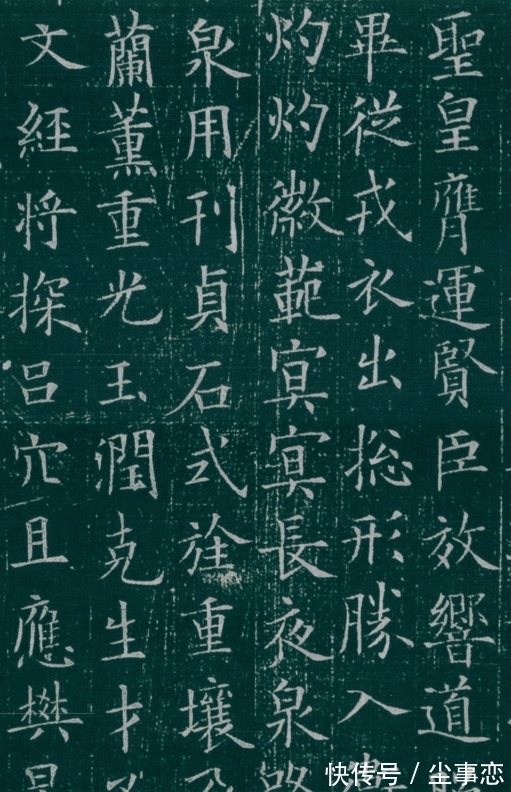 聖皇膺運賢臣效響道
畢從戎衣出揔形勝入
灼灼徽範冥冥長夜泉
泉用刊貞石式旌重壤
蘭薰重光玉潤克生才
文經将探呂穴且應樊
快传号 / 尘事恋